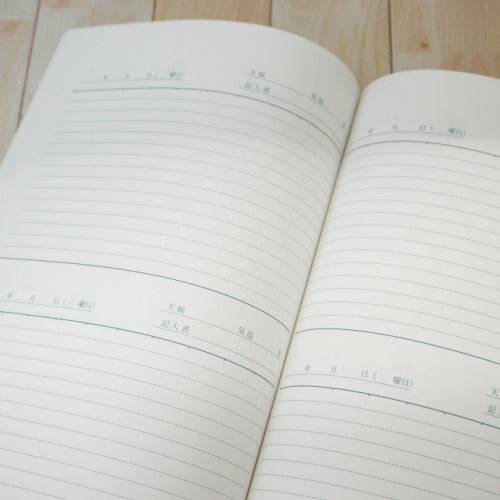 年 月 日( 曜日) 天候 気温
記入者
年 月 日( 曜日) 天候 気温
記入者
年 月 日( 曜日)
年 月 日( 曜日) 天
記